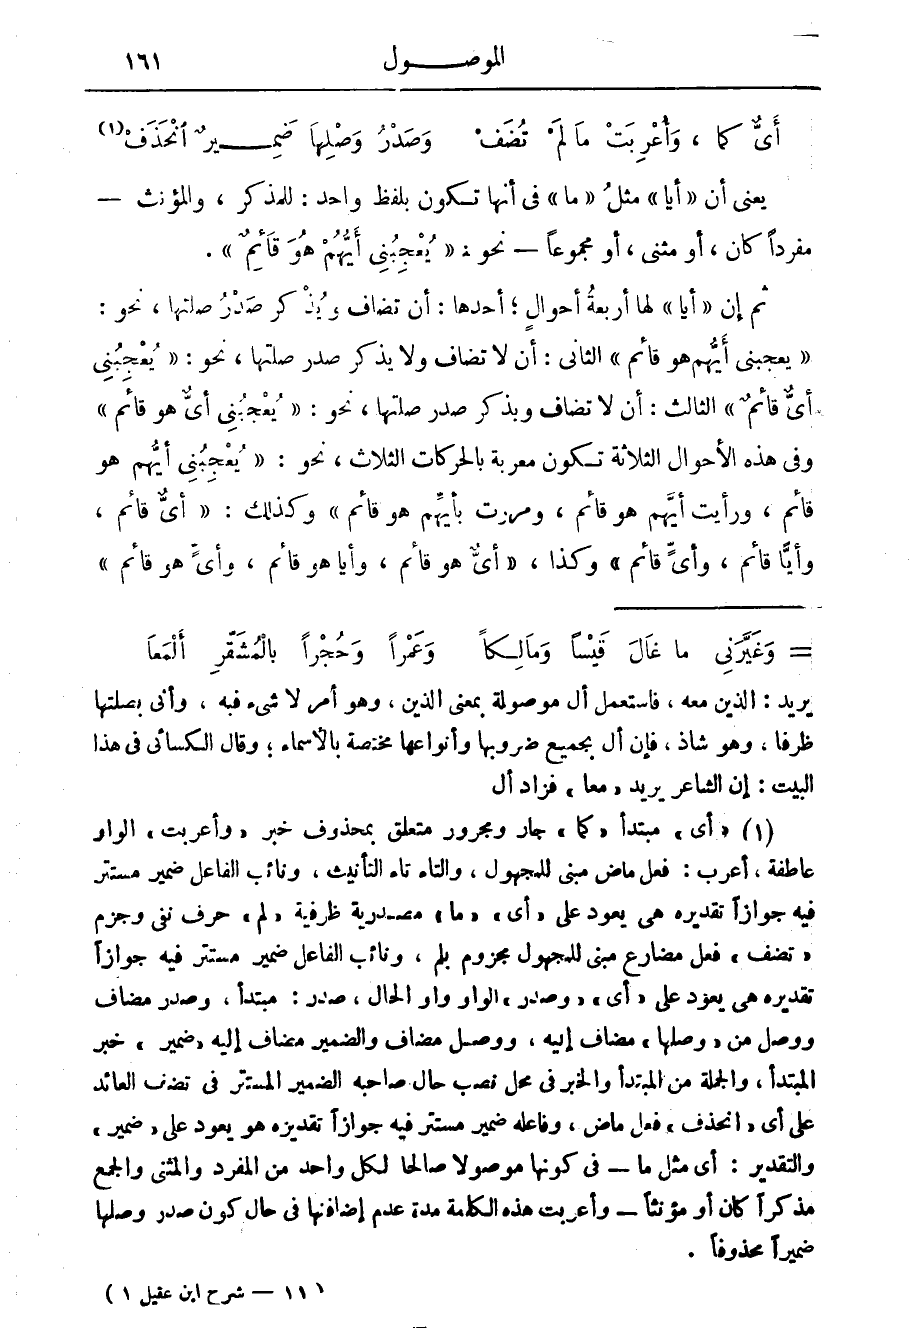 الموصول ١٦١
أَىٌّ كما ، وَأُعْرِبَتْ مَا لَمْ تُضَفْ وَصَدْرُ وَصْلِهَا ضَمِيرٌ انْحَذَفْ (١)
يعنى أن «أيا» مثلُ «ما» فى أنها تكون بلفظ واحد : للمذكر ، والمؤنث —
مفرداً كان ، أو مثنى ، أو مجموعاً — نحو : « يُعْجِبُنِى أَيُّهُمْ هُوَ قَائِمٌ » .
ثم إن «أيا» لها أربعةُ أحوالٍ ؛ أحدها : أن تضاف ويُذْكر صَدْرُ صلتها ، نحو :
« يعجبنى أَيُّهم هو قائم » الثانى : أن لا تضاف ولا يذكر صدر صلتها ، نحو : « يُعْجِبُنِى
أىٌّ قائمٌ » الثالث : أن لا تضاف ويذكر صدر صلتها ، نحو : « يُعْجِبُنِى أىٌّ هو قائم »
وفى هذه الأحوال الثلاثة تكون معربة بالحركات الثلاث ، نحو : « يُعْجِبُنِى أيُّهم هو
قائم ، ورأيت أيَّهم هو قائم ، ومررت بأيِّهم هو قائم » وكذلك : « أىٌّ قائم ،
وأيًّا قائم ، وأىٍّ قائم » وكذا ، « أىٌّ هو قائم ، وأيا هو قائم ، وأىٍّ هو قائم »
= وَغَيَّرَنِى ما غَالَ قَيْسًا وَمَالِكاً وَعَمْراً وَحُجْراً بالْمُشَقَّرِ أَلْمَعَا
يريد : الذين معه ، فاستعمل أل موصولة بمعنى الذين ، وهو أمر لا شىء فيه ، وأتى بصلتها
ظرفا ، وهو شاذ ، فإن أل بجميع ضروبها وأنواعها مختصة بالأسماء ؛ وقال الكسائى فى هذا
البيت : إن الشاعر يريد «معا» فزاد أل
(١) «أى» مبتدأ «كما» جار ومجرور متعلق بمحذوف خبر «وأعربت» الواو
عاطفة ، أعرب : فعل ماض مبنى للمجهول ، والتاء تاء التأنيث ، ونائب الفاعل ضمير مستتر
فيه جوازاً تقديره هى يعود على «أى» «ما» مصدرية ظرفية «لم» حرف نفى وجزم
«تضف» فعل مضارع مبنى للمجهول مجزوم بلم ، ونائب الفاعل ضمير مستتر فيه جوازاً
تقديره هى يعود على «أى» «وصدر» الواو واو الحال ، صدر : مبتدأ ، وصدر مضاف
ووصل من «وصلها» مضاف إليه ، ووصل مضاف والضمير مضاف إليه «ضمير» خبر
المبتدأ ، والجملة من المبتدأ والخبر فى محل نصب حال صاحبه الضمير المستتر فى تضف العائد
على أى «انحذف» فعل ماض ، وفاعله ضمير مستتر فيه جوازاً تقديره هو يعود على «ضمير»
والتقدير : أى مثل ما — فى كونها موصولا صالحا لكل واحد من المفرد والمثنى والجمع
مذكراً كان أو مؤنثاً — وأعربت هذه الكلمة مدة عدم إضافتها فى حال كون صدر وصلها
ضميراً محذوفاً .
( ١١ — شرح ابن عقيل ١ )